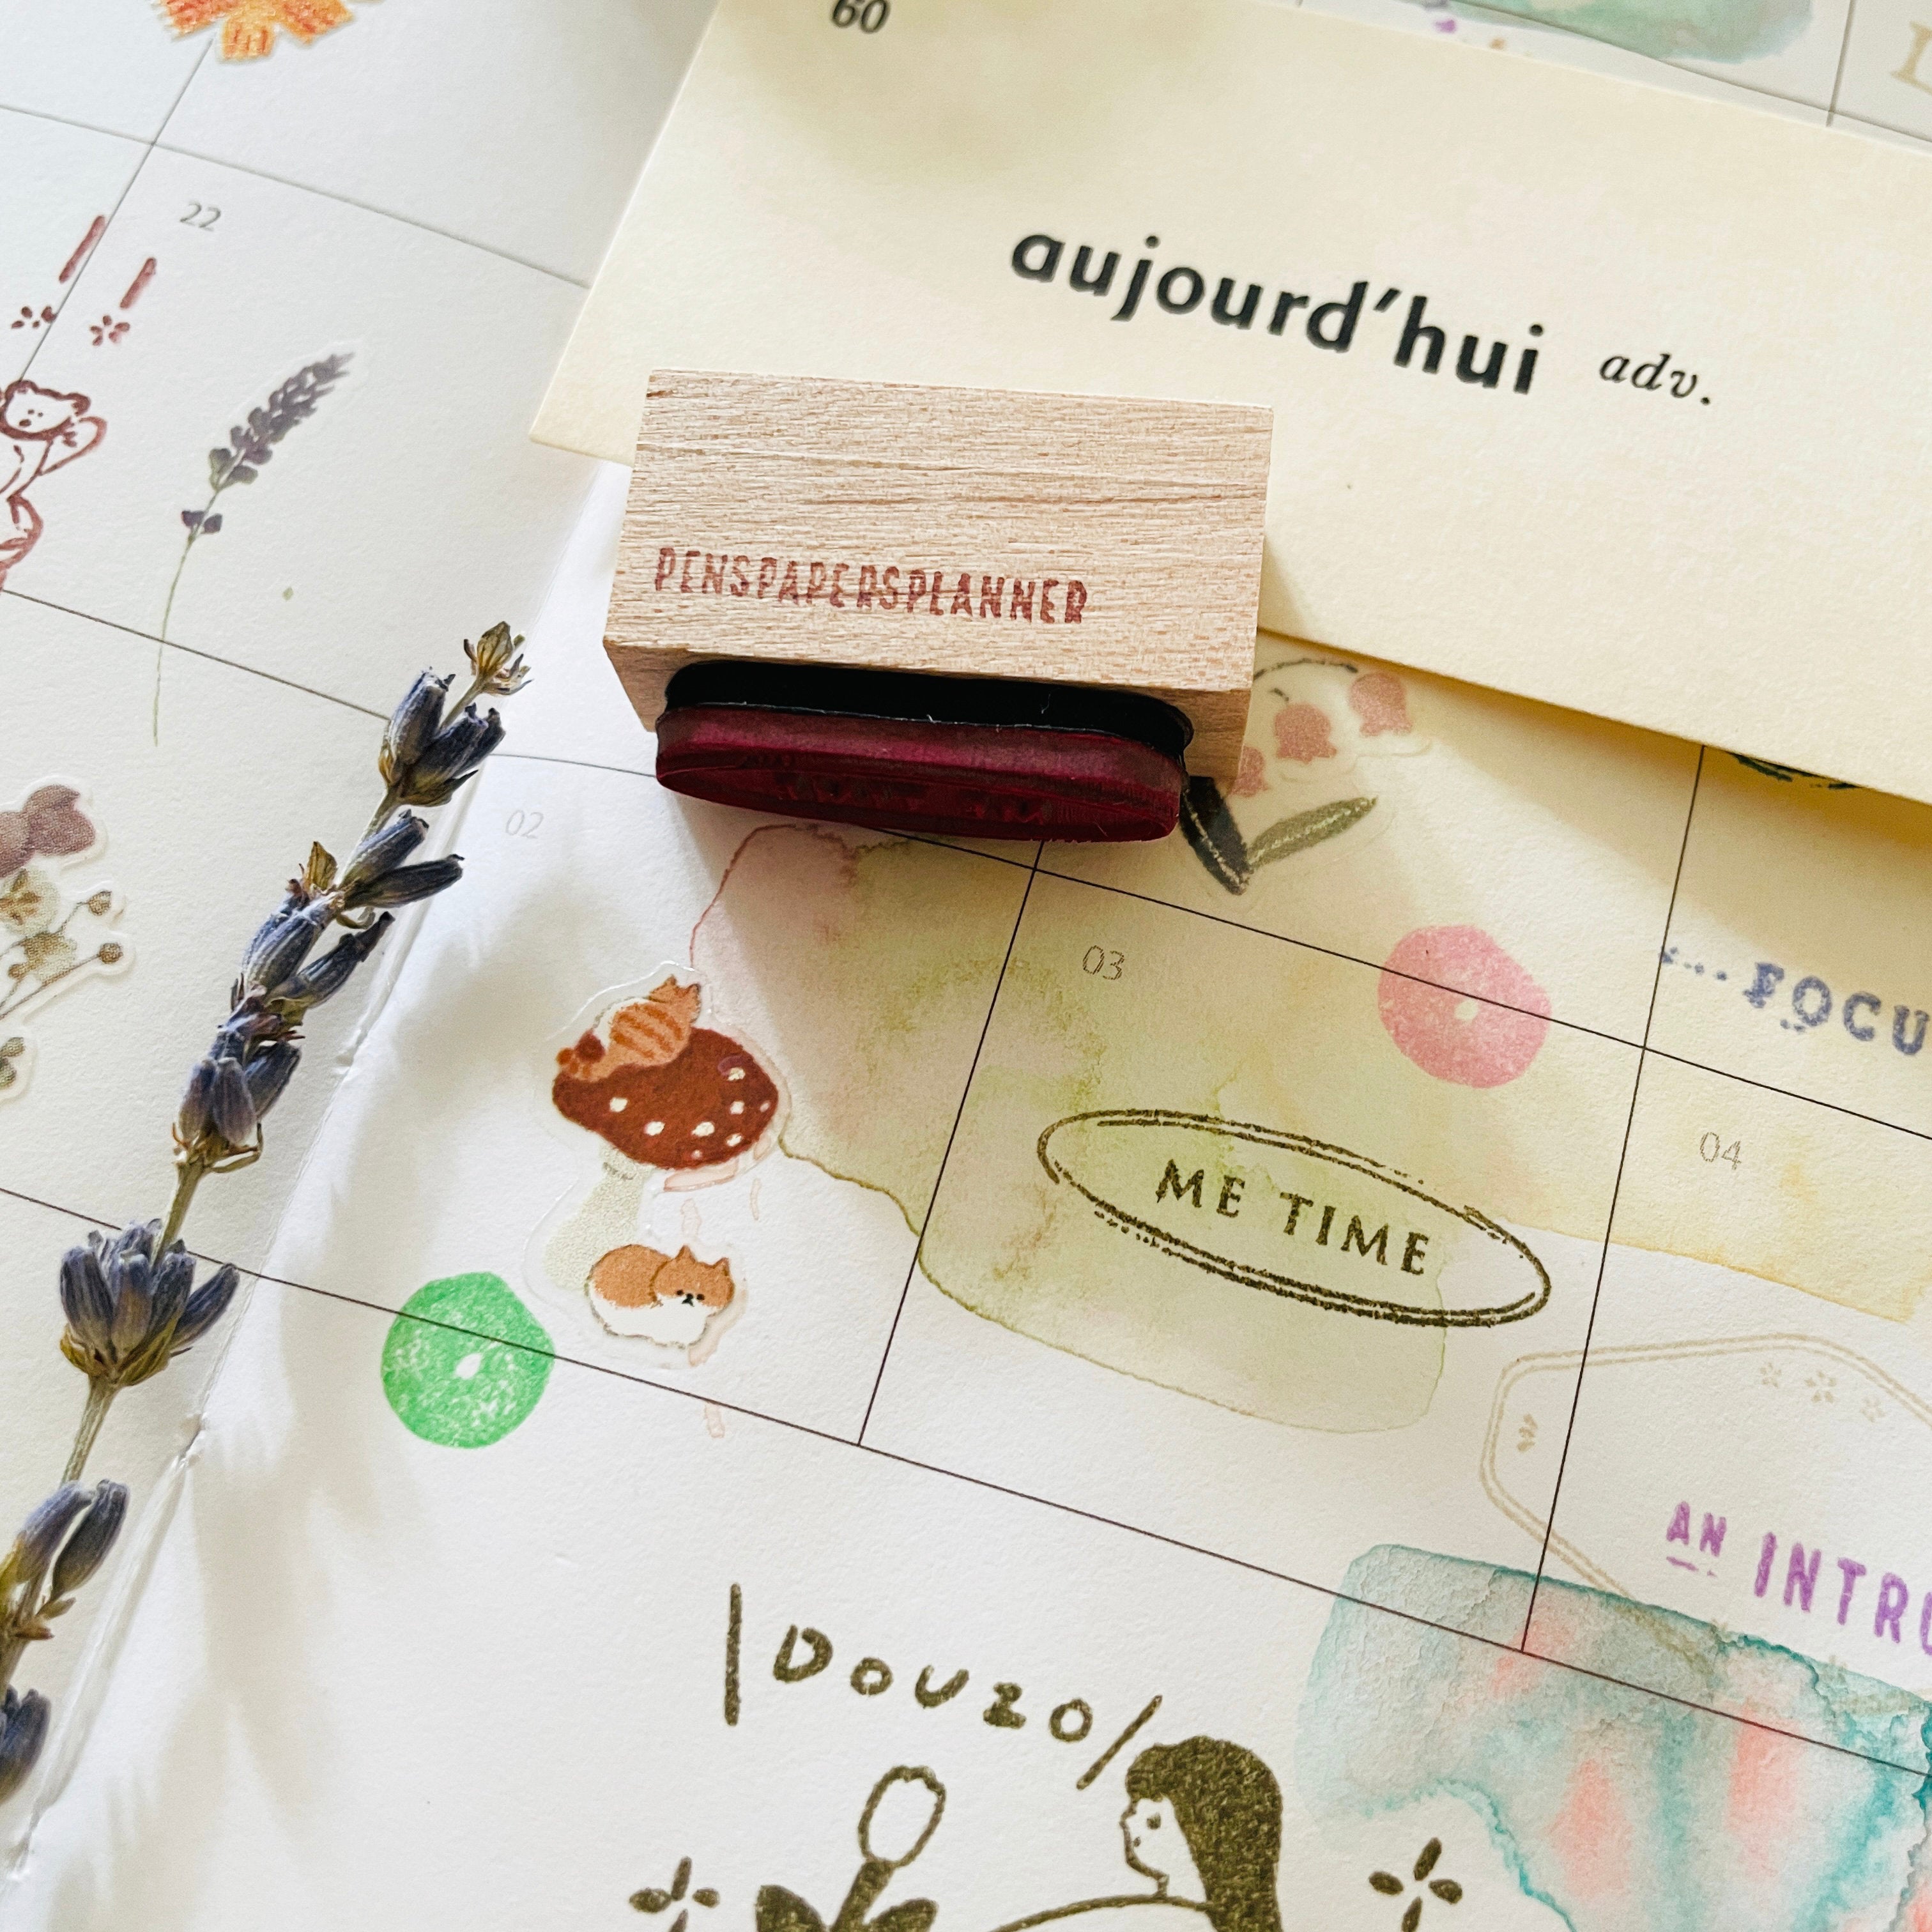 60
aujourd'hui adv.
22
PENSPAPERSPLANNER
02
03
FOCU
ME TIME
04
AN INTRO
DOUZO